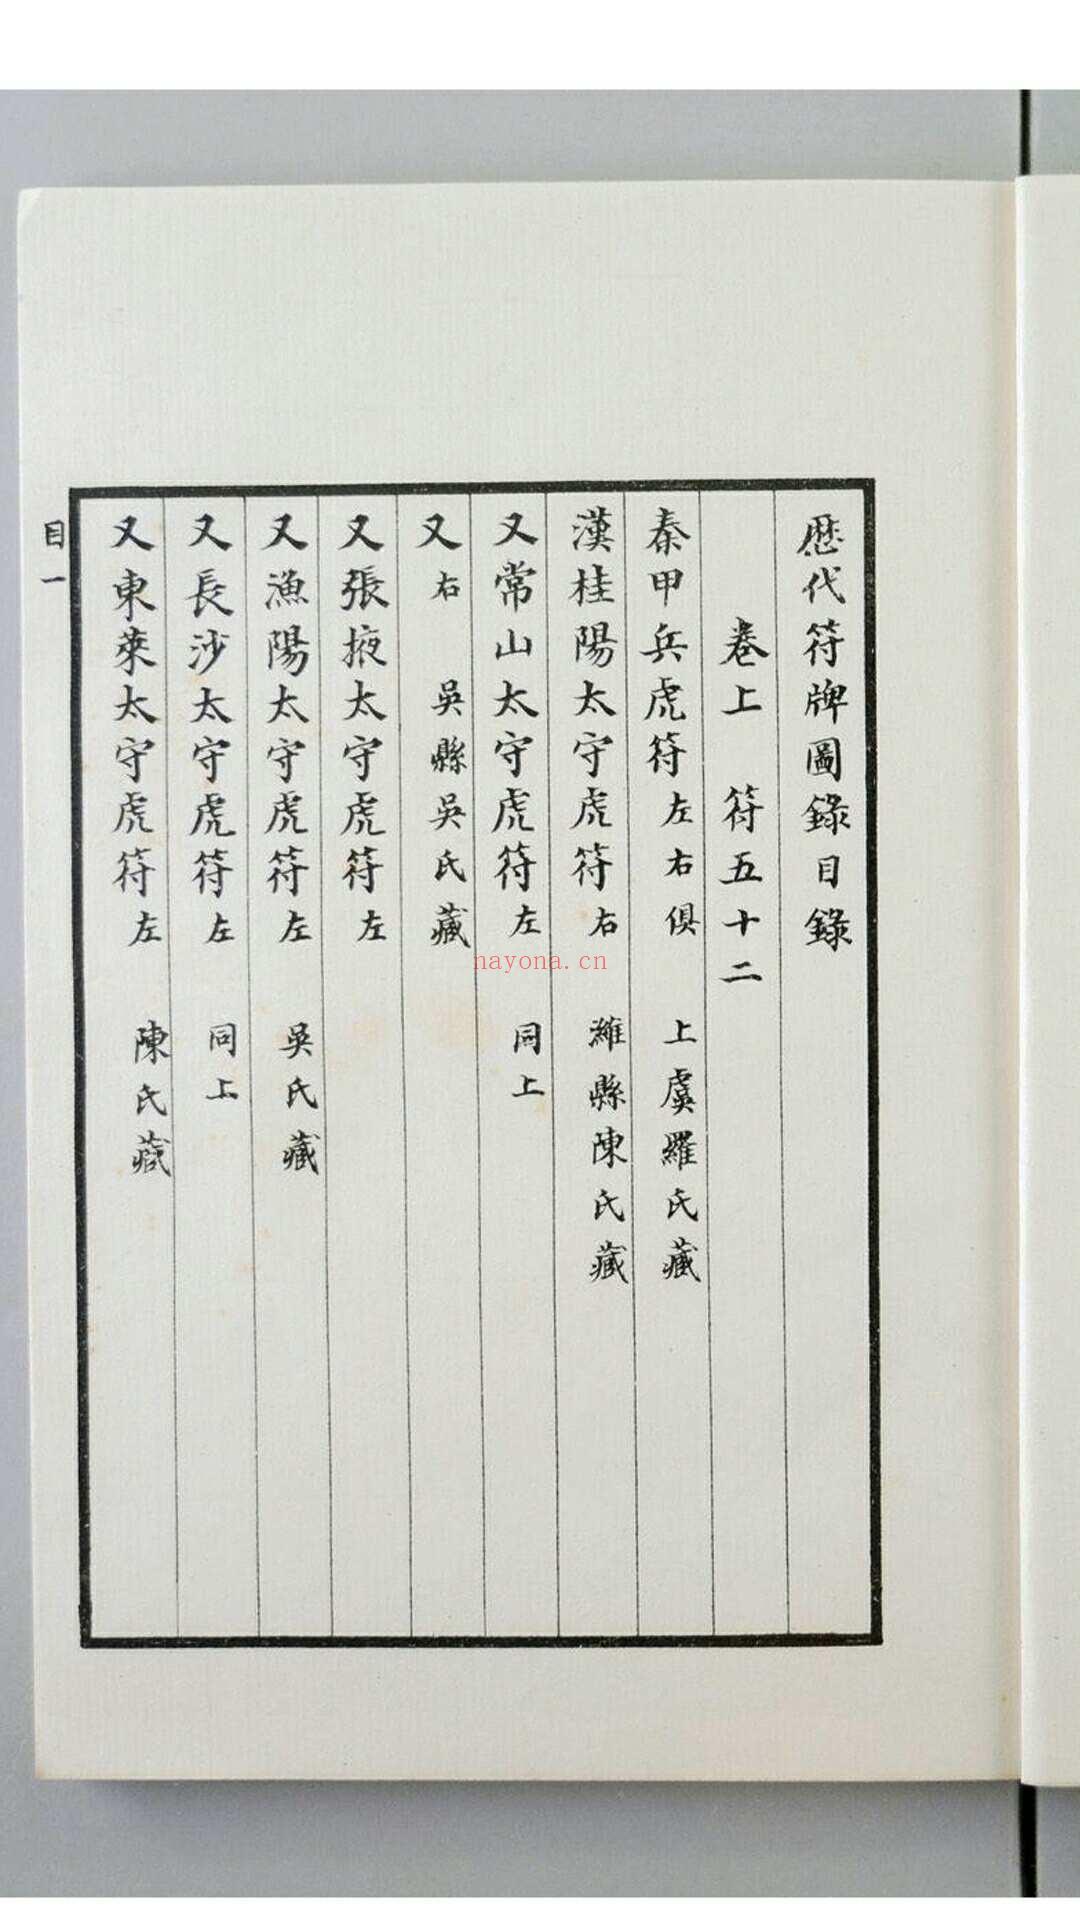 歷代符牌圖錄目錄
卷上　符五十二
秦甲兵虎符左右俱　上虞羅氏藏
漢桂陽太守虎符右　濰縣陳氏藏
又常山太守虎符左　同上
又右　吳縣吳氏藏
又張掖太守虎符左
又漁陽太守虎符左　吳氏藏
又長沙太守虎符左　同上
又東萊太守虎符左　陳氏藏
目一
nayona.cn